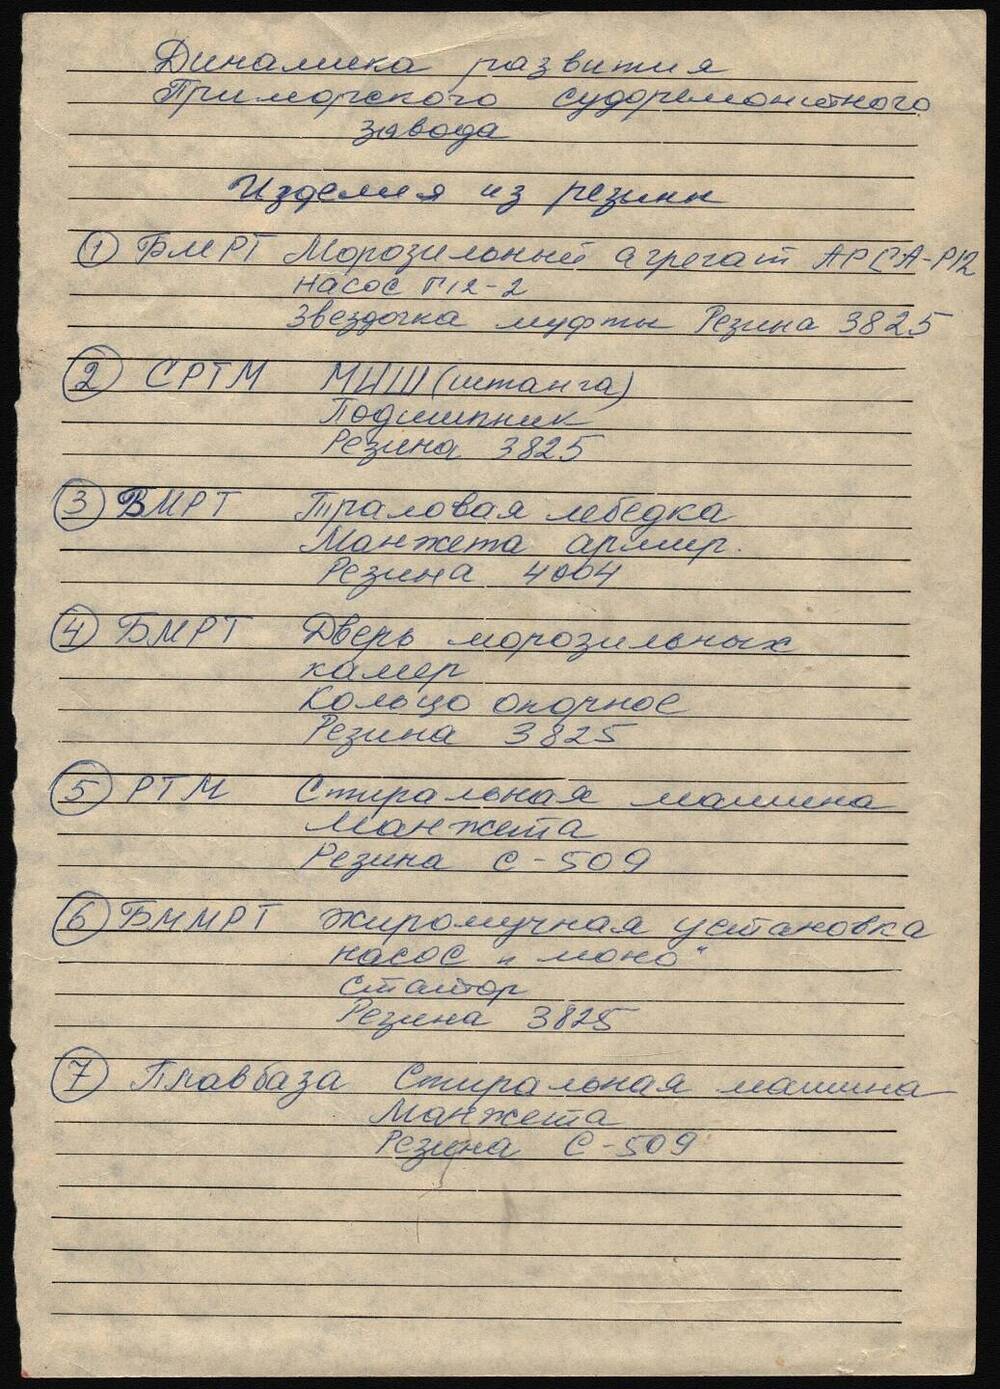 Динамика развития
Приморского судоремонтного
завода
Изделия из резины
1 БМРТ Морозильный агрегат АРСА-Р12
насос Г12-2
Звездочка муфты Резина 3825
2 СРТМ МИШ (штанга)
Подшипник
Резина 3825
3 БМРТ Траловая лебедка
Манжета армир.
Резина 4004
4 БМРТ Дверь морозильных
камер
Кольцо опочное
Резина 3825
5 РТМ Стиральная машина
Манжета
Резина С-509
6 БММРТ Жиромучная установка
насос „моно"
Статор
Резина 3825
7 Плавбаза Стиральная машина
Манжета
Резина С-509